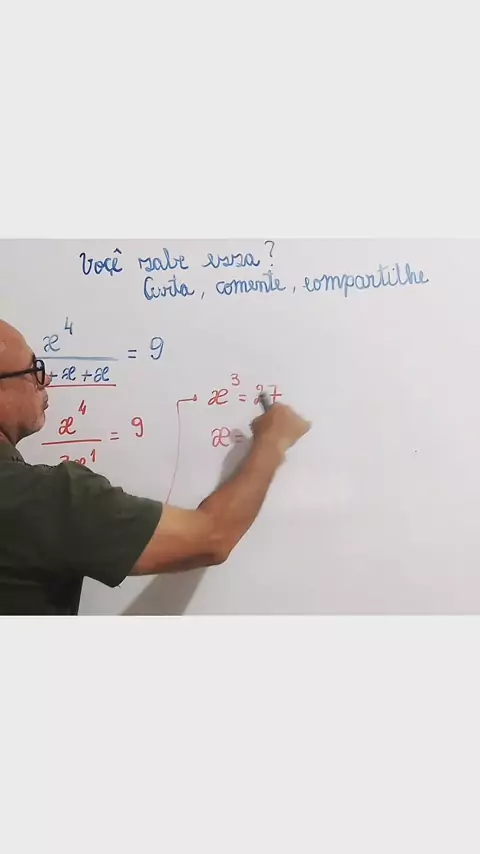 Você sabe essa?
Curta, comente, compartilhe
x⁴
= 9
+ x + x
x⁴
= 9
x³ = 27
x =